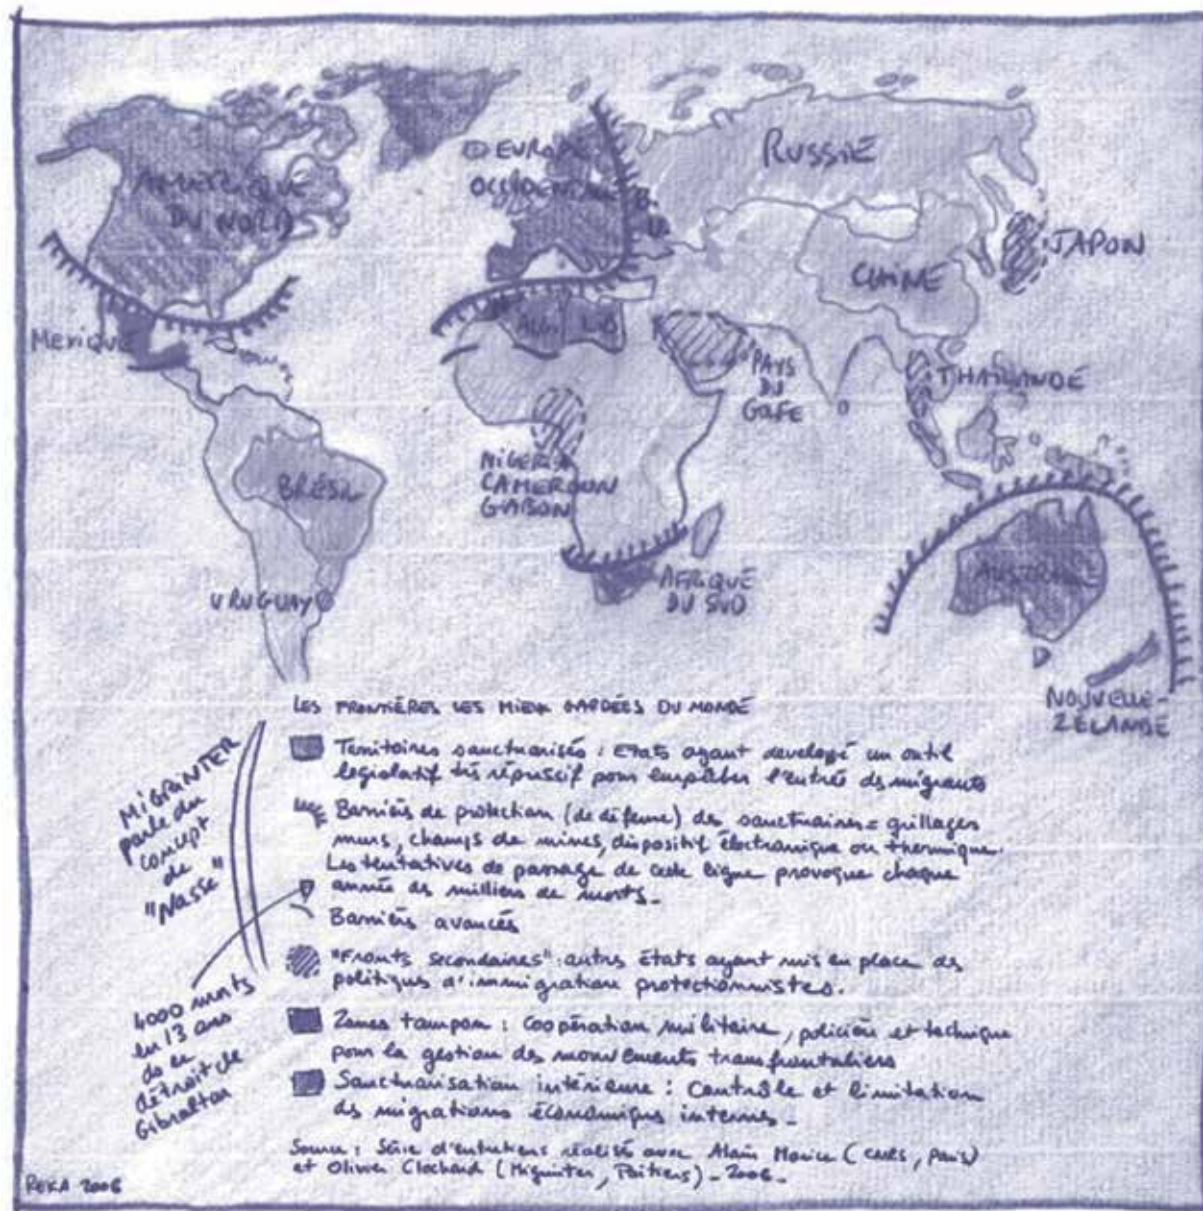 AMÉRIQUE
DU NORD
EUROPE
OCCIDENTALE
RUSSIE
JAPON
CHINE
MEXIQUE
ALG
LIB
PAYS
DU
GOLFE
THAÏLANDE
NIGERIA
CAMEROUN
GABON
BRÉSIL
URUGUAY
AFRIQUE
DU SUD
AUSTRALIE
NOUVELLE-
ZÉLANDE
LES FRONTIÈRES LES MIEUX GARDÉES DU MONDE
Territoires sanctuarisés : Etats ayant developpé un outil
legislatif très répressif pour empêcher l'entrée des migrants
Barrières de protection (de défense) des sanctuaires = grillages
murs, champs de mines, dispositif électronique ou thermique.
Les tentatives de passage de cette ligne provoque chaque
année des milliers de morts.
Barrières avancés
"Fronts secondaires" : autres états ayant mis en place des
politiques d'immigration protectionnistes.
Zones tampon : Coopération militaire, policière et technique
pour la gestion des mouvements transfrontaliers
Sanctuarisation intérieure : Contrôle et limitation
des migrations économiques internes.
Source : Série d'entretiens réalisés avec Alain Morice (CNRS, Paris)
et Olivier Clochard (Migrinter, Poitiers) - 2006.
MIGRINTER
parle du
concept
de
"Nasse"
4000 morts
en 13 ans
détroit de
Gibraltar
REKA 2006